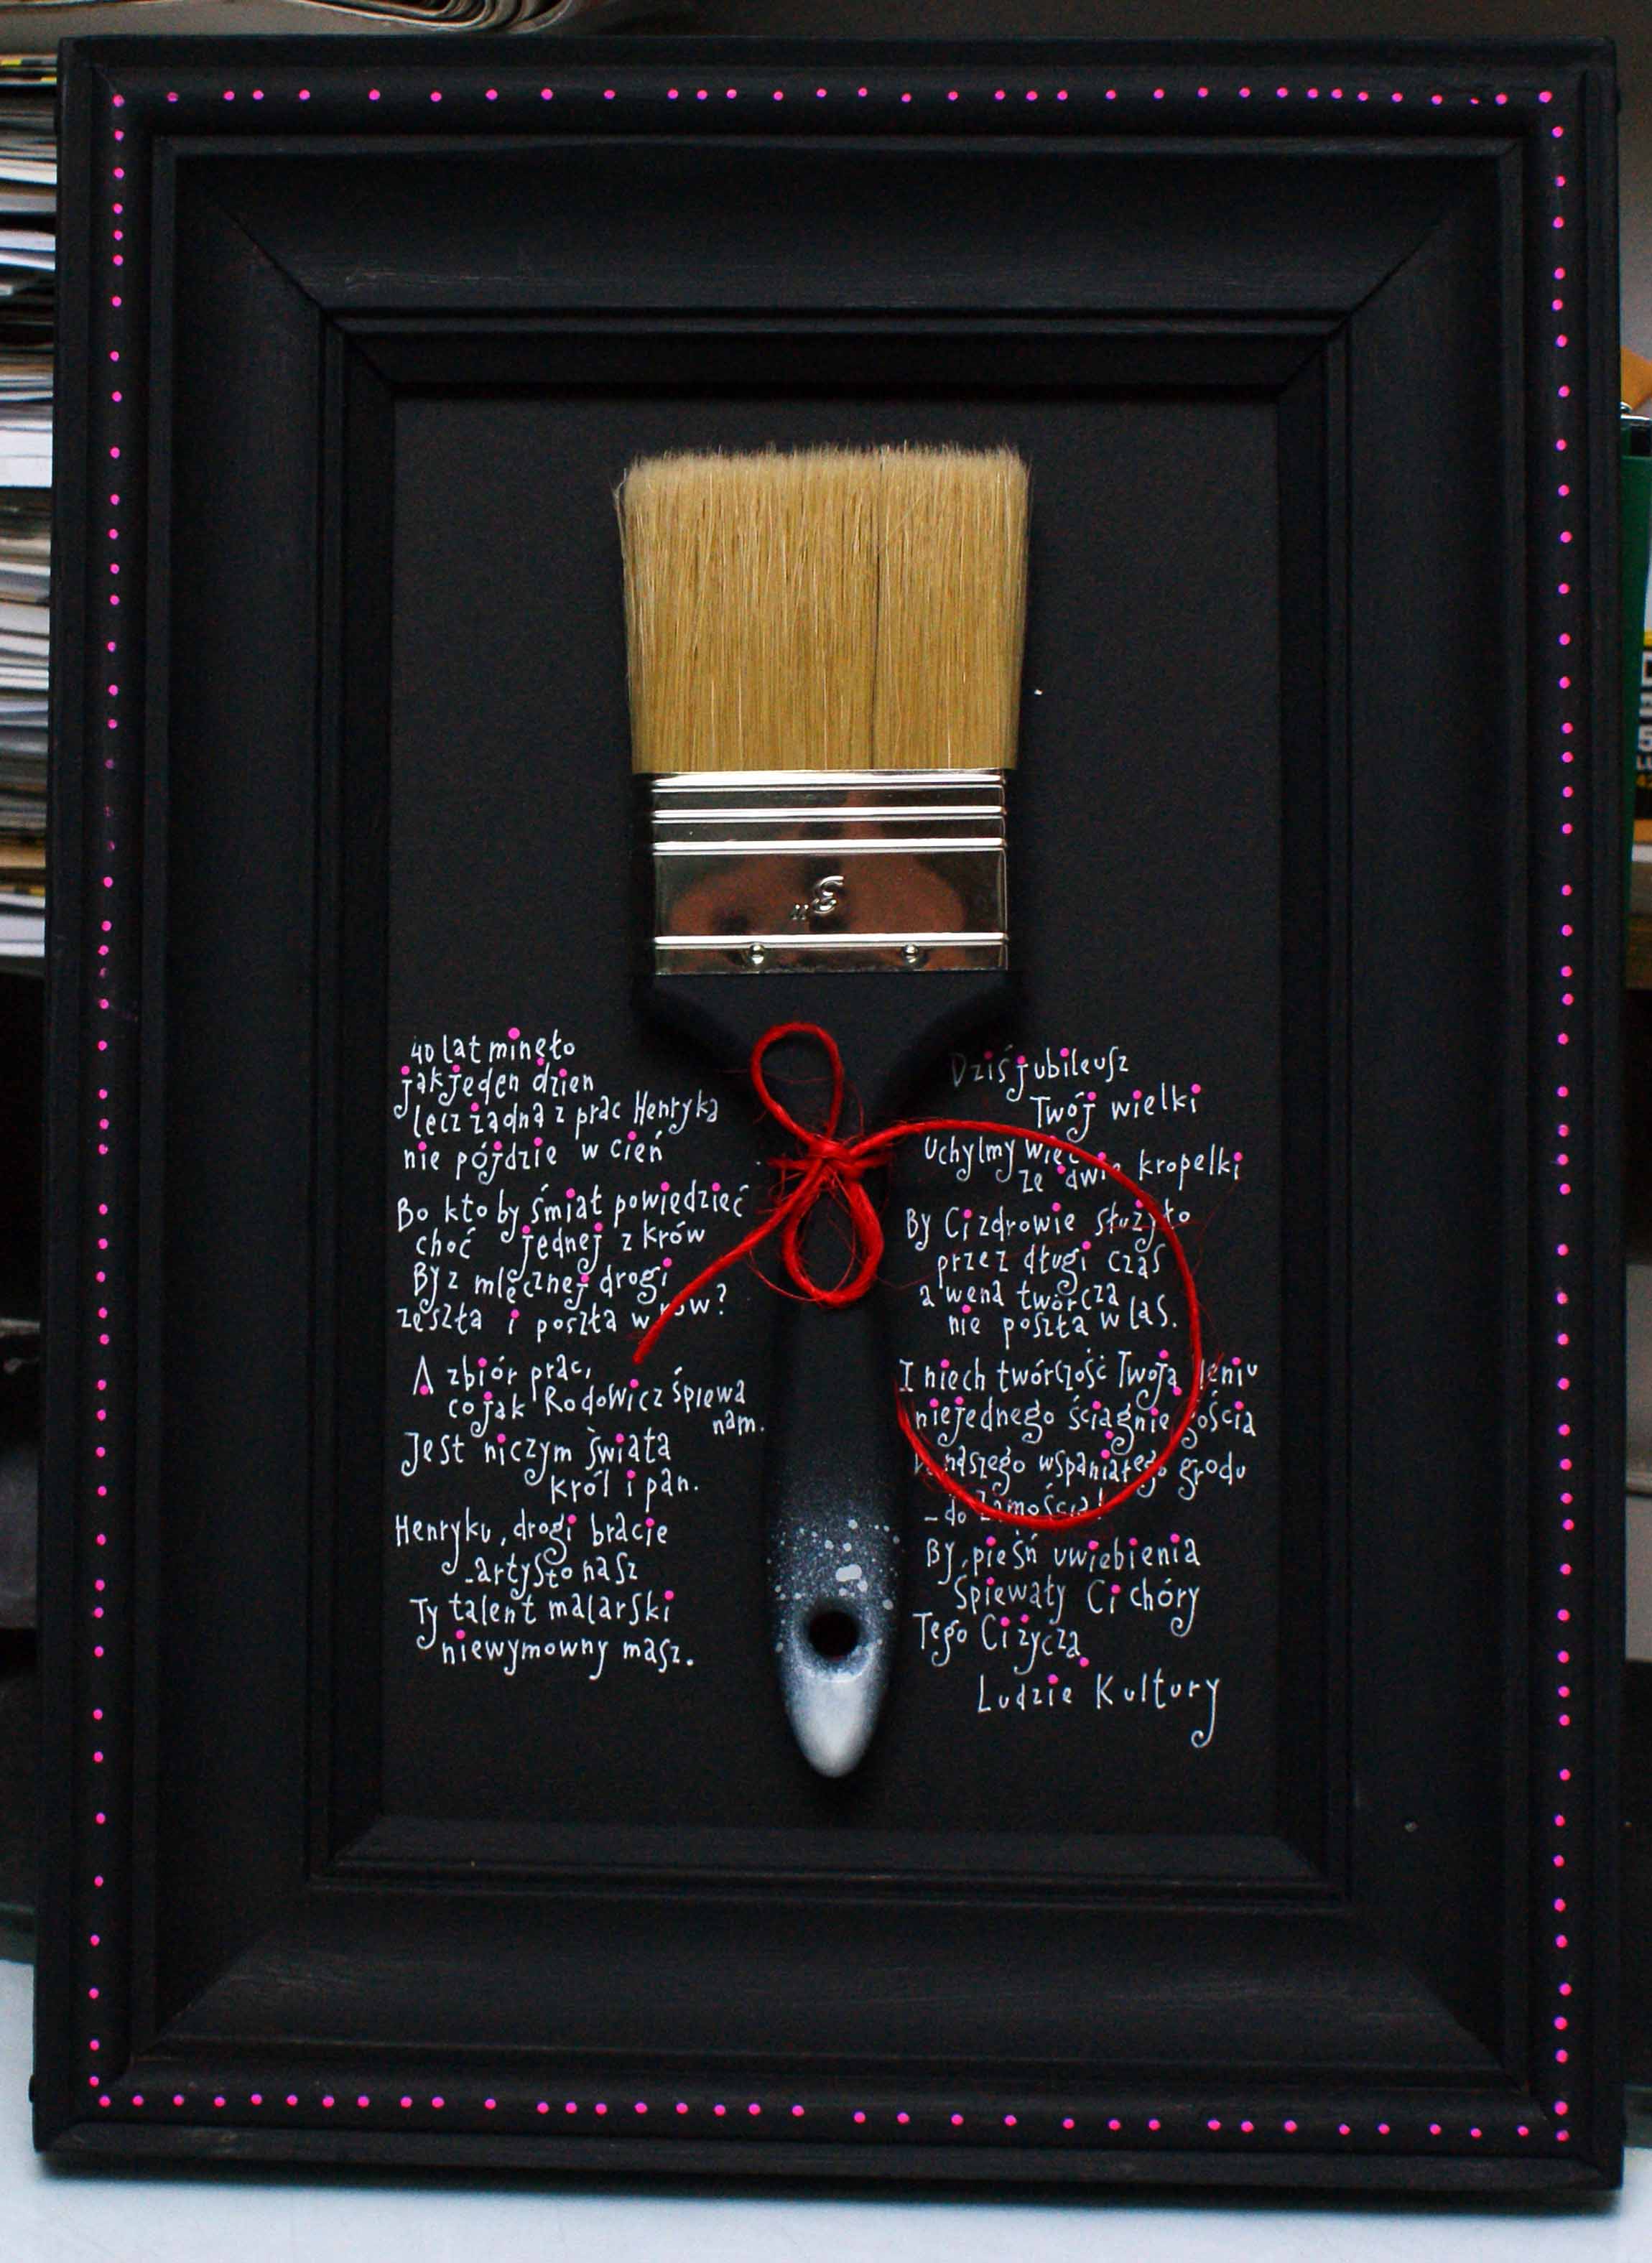 3"
40 lat minęło
jak jeden dzien
lecz żadna z prac Henryka
nie pójdzie w cień
Bo kto by śmiał powiedzieć
choć jednej z krów
By z mlęcznej drogi
zeszła i poszła w
A zbiór prac,
co jak Rodowicz śpiewa
nam.
Jest niczym świata
król i pan.
Henryku, drogi bracie
-artysto nasz
Ty talent malarski
niewymowny masz.
Dziś jubileusz
Twój wielki
Uchylmy więc
ze dwie kropelki
By Ci zdrowie służyło
przez długi czas
a wena twórcza
nie poszła w las.
I niech twórczość Twoja
niejednego ściągnie gościa
naszego wspaniałego grodu
- do Zamościa!
By pieśń uwiebienia
Śpiewały Ci chóry
Tego Ci życzą
Ludzie Kultury